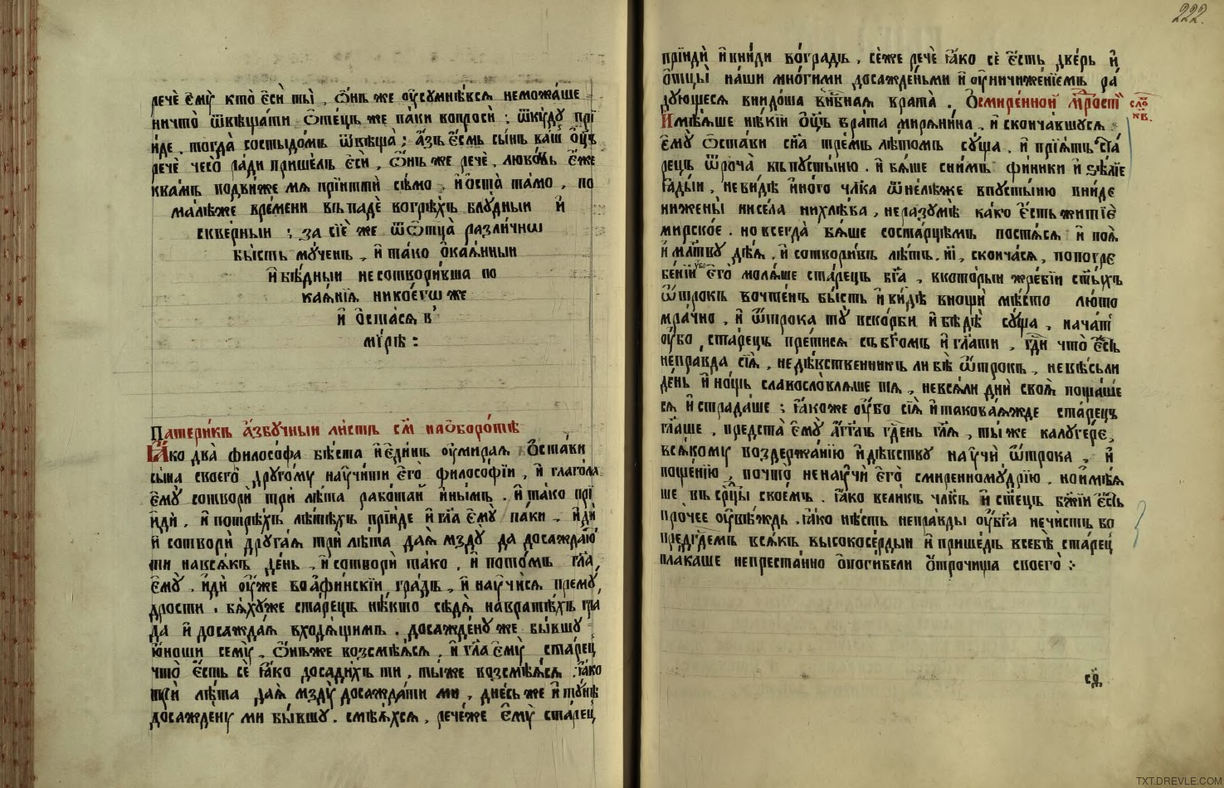 речѐ є҆мꙋ̀ кто̀ є҆сѝ ты̀ , ѻ҆́нъ же оу҆сꙋмнѣ́всѧ неможа́ше
ничто̀ ѿвѣща́ти ѿте́цъ же па́ки вопросѝ : ѿкꙋ́дꙋ прї
и́де , тогда̀ состыдо́мъ ѿвѣща̀ ; а҆́зъ є҆́смь сы́нъ ва́шъ ѻ҆ц҃ъ
речѐ чесо̀ ра́ди прише́лъ є҆сѝ , ѻ҆́нъ же речѐ , любо́вь є҆́же
ква́мъ подви́же мѧ прїитѝ сѣ́мо . и҆ ѡ҆ста̀ та́мо , по
ма́лѣже вре́мени въпадѐ вогрѣ́хъ блꙋ́дныи и҆
скве́рныи : за сїе́ же ѿѻтца̀ разли́чнѡ
бы́сть мꙋ́ченъ , и҆ та́ко ѻ҆каѧ́нныи
и҆ бѣ́дныи не сотвори́вша по
каѧ́нїѧ никоегѡ же
и҆ ѡ҆ста́сѧ в̾
ми́рѣ :
Патери́къ а҆́збꙋчныи ли́стъ см҃ наѻборо́тѣ
Ꙗ҆́ко два̀ філосо́фа бѣ́ста и҆ є҆ди́нъ оу҆мира́ѧ ѡ҆ста́ви
сы́на своего̀ дрꙋго́мꙋ наꙋчи́ти є҆го̀ філосо́фїи , и҆ глаго́ла
є҆мꙋ̀ сотворѝ трѝ лѣ́та рабо́таи и҆ны́мъ . и҆ та́ко прї
идѝ , и҆ потрѣ́хъ лѣ́тѣхъ прїи́де и҆ гл҃а є҆мꙋ̀ па́ки . и҆дѝ
и҆ сотворѝ дрꙋга́ѧ трѝ лѣ́та даѧ̀ мздꙋ̀ да досажда́ю
ти навсѧ́къ де́нь , и҆ сотворѝ та́ко , и҆ пото́мъ гл҃а ,
є҆мꙋ̀ . и҆дѝ оу҆́же во а҆фи́нскїи гра́дъ , и҆ наꙋчи́сѧ премꙋ́
дрости . бѧ́хꙋже ста́рецъ нѣ́кто сѣдѧ̀ навратѣ́хъ гра
да и҆ досажда́ѧ входѧ́щимъ . досажде́нꙋ же бы́вшꙋ
ю҆́ноши семꙋ̀ , ѻ҆́нъже возсмѣѧ́сѧ , и҆ гл҃а є҆мꙋ̀ ста́рец
что̀ є҆́сть сѐ ꙗ҆́ко досади́хъ ти , ты́же возсмѣѧ́сѧ . ꙗ҆́ко
трѝ лѣ́та даѧ̀ мздꙋ̀ досажда́ти ми , дне́сь же и҆ тꙋ́нѣ
досажде́нꙋ ми бы́вшꙋ . смѣѧ́хсѧ , рече́же є҆мꙋ̀ ста́рец
222.
прїидѝ и҆ вни́ди во гра́дъ , се́же речѐ ꙗ҆́ко сѐ є҆́сть две́рь и҆
ѻ҆тцы̀ на́ши мно́гими досажде́ньми и҆ оу҆ничиже́нїемъ ра́
дꙋющесѧ внидо́ша вн҃бнаѧ врата̀ . Ѻ҆ смире́ннои мр҃ости сло́ н҃в.
И҆мѣ́ѧше нѣ́кїи ѻ҆ц҃ъ бра́та мирѧ́нина , и҆ сконча́вшꙋсѧ
є҆мꙋ̀ ѡ҆ста́ви сн҃а тре́мъ лѣ́томъ сꙋ́ща . и҆ прїѧ́тъ ста́
рецъ ѿроча̀ въпꙋсты́ню . и҆ бѧ́ше сни́мъ фи́ники и҆ ѕе́лїе
ꙗ҆ды́и , невидѣ̀ и҆но́го чл҃ка ѿне́лѣже впꙋсты́ню вни́де
нижены̀ нисела̀ нихлѣ́ба , неразꙋмѣ̀ ка́ко є҆́сть житїѐ
мирско́е . но всегда̀ бѧ́ше соста́рцемъ постѧ́сѧ и҆ поѧ̀
и҆ мл҃твꙋ дѣ́ѧ , и҆ сотвори́въ лѣ́тъ . и҃і , сконча́сѧ , попогре
бе́нїи є҆го̀ молѧ́ше ста́рецъ бг҃а , вкоторыи жре́бїи ст҃ы́хъ
ѿтрокъ вочте́нъ бы́сть и҆ ви́дѣ внощѝ мѣ́сто лю́то
мра́чно , и҆ ѿтрока тꙋ̀ вско́рби и҆ бѣдѣ̀ сꙋ́ща , нача́тъ
оу҆́бо , ста́рецъ прети́сѧ съ бг҃омъ и҆ гл҃ати , гд҃и что̀ є҆́сть
непра́вда сїѧ̀ , недѣ́вственникъ ли бѣ̀ ѿтрокъ , невѣ́сь ли
де́нь и҆ но́щь славосло́влѧше тѧ̀ , невсѧ́ ли дни̑ своѧ̀ поща́ше
сѧ и҆ страда́ше : ꙗ҆́коже оу҆́бо сїѧ̀ и҆ такова́ѧжде ста́рецъ
гл҃аше , предста̀ є҆мꙋ̀ а҆́гг҃лъ гд҃ень гл҃ѧ , ты́ же калꙋ́гере ,
всѧ́комꙋ воздержа́нїю и҆ дѣ́вствꙋ наꙋчѝ ѿтрока , и҆
поще́нїю , почто̀ ненаꙋчѝ є҆го̀ смиренномꙋ́дрїю . но и҆мѣ́ѧ
ше въ ср҃цы свое́мъ . ꙗ҆́ко вели́къ чл҃къ и҆ ст҃е́цъ бж҃їи є҆́сть
про́чее оу҆вѣ́ждь . ꙗ҆́ко нѣ́сть непра́вды оу҆бг҃а нечи́стъ бо
предгд҃емъ всѧ́къ высокосе́рдыи и҆ прише́дъ всебѣ̀ ста́рец
пла́каше непреста́нно ѡ҆поги́бели ѻ҆тро́чища своего̀ :
TXT.DREVLE.COM